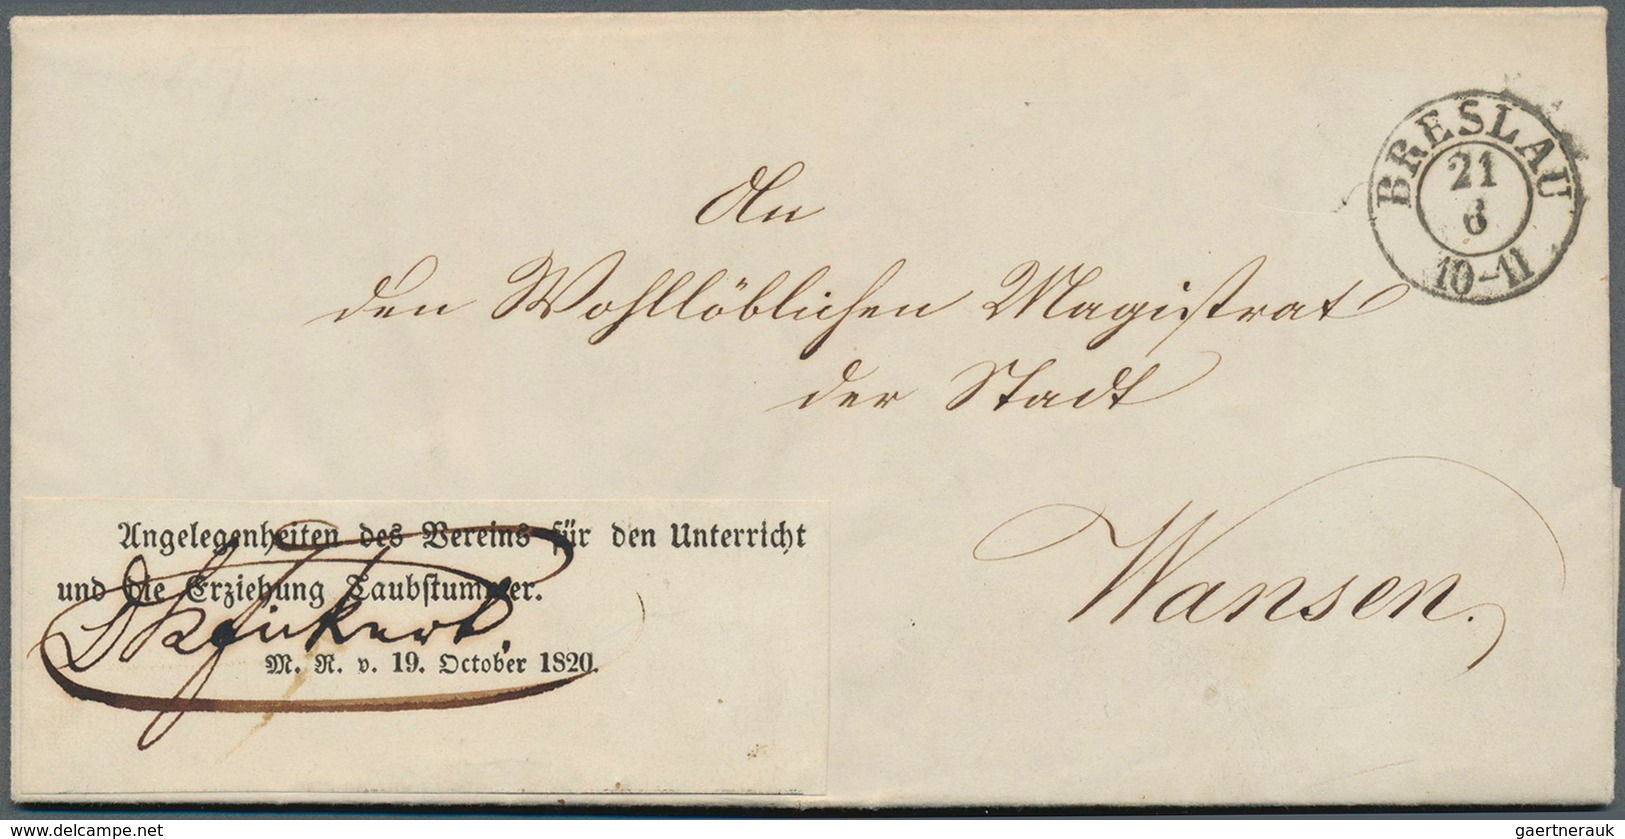 BRESLAU
21
6
10-11
An
den Wohllöblichen Magistrat
der Stadt
Wansen.
Angelegenheiten des Vereins für den Unterricht
und die Erziehung Taubstummer.
M. R. v. 19. October 1820.
www.delcampe.net
gaertnerauk